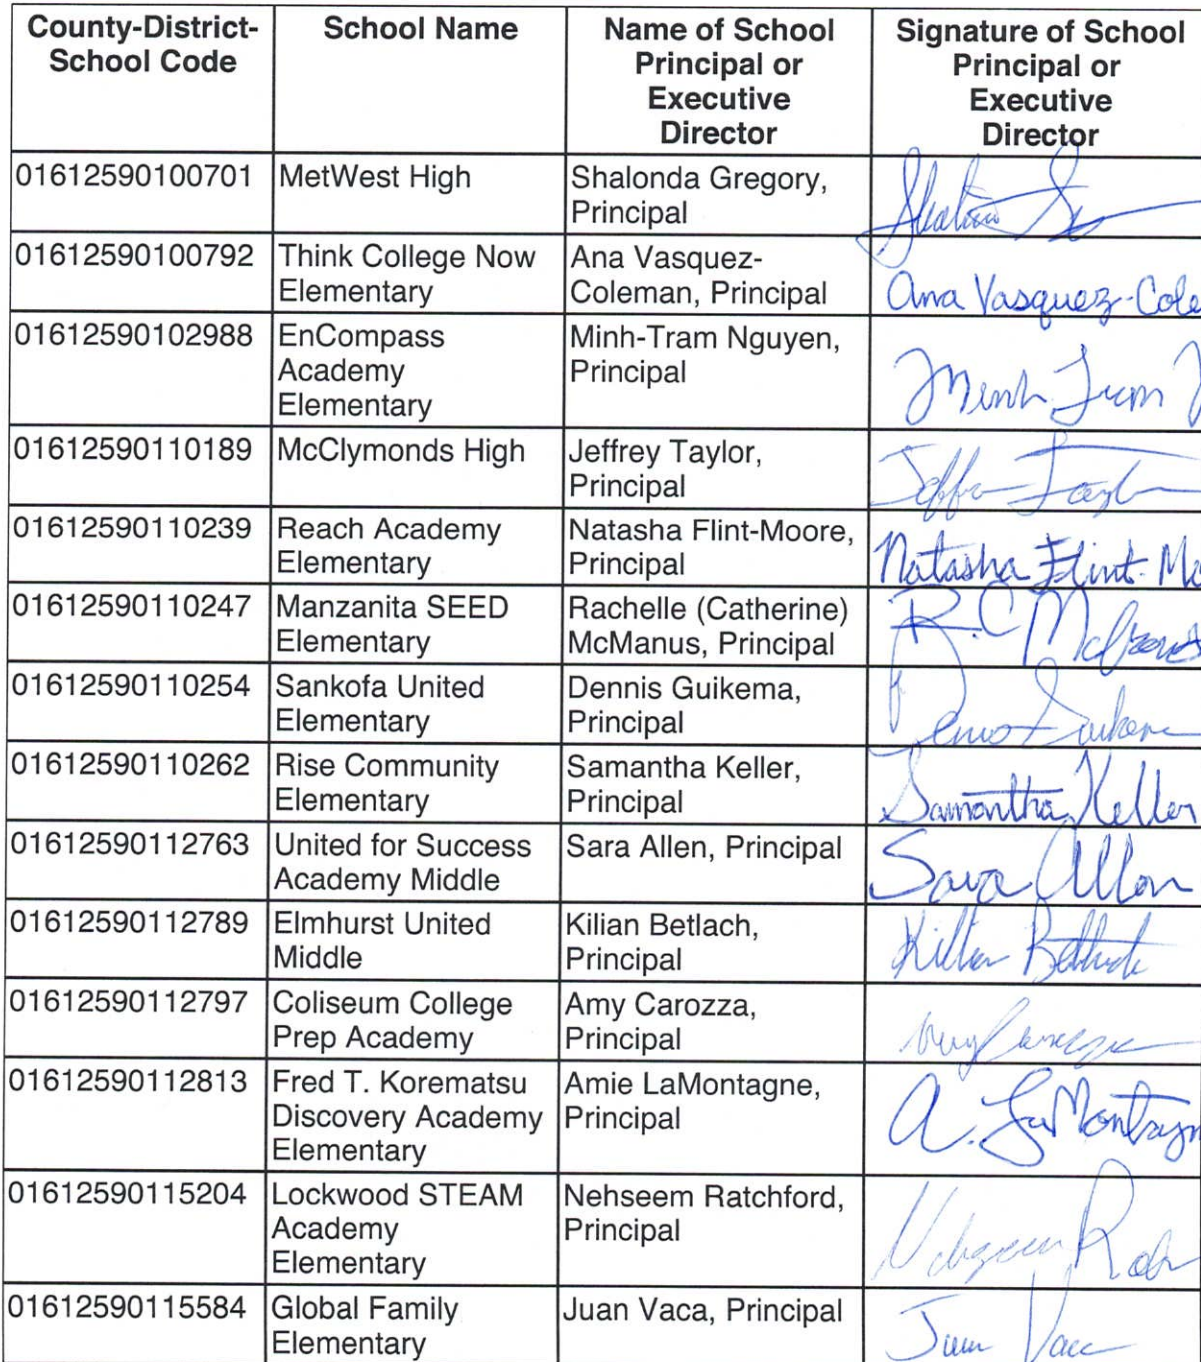 County-District-
School Code
School Name
Name of School
Principal or
Executive
Director
Signature of School
Principal or
Executive
Director
01612590100701
MetWest High
Shalonda Gregory,
Principal
01612590100792
Think College Now
Elementary
Ana Vasquez-
Coleman, Principal
Ana Vasquez-Cole
01612590102988
EnCompass
Academy
Elementary
Minh-Tram Nguyen,
Principal
01612590110189
McClymonds High
Jeffrey Taylor,
Principal
01612590110239
Reach Academy
Elementary
Natasha Flint-Moore,
Principal
Natasha Flint-Mo
01612590110247
Manzanita SEED
Elementary
Rachelle (Catherine)
McManus, Principal
01612590110254
Sankofa United
Elementary
Dennis Guikema,
Principal
01612590110262
Rise Community
Elementary
Samantha Keller,
Principal
Samantha Keller
01612590112763
United for Success
Academy Middle
Sara Allen, Principal
Sara Allen
01612590112789
Elmhurst United
Middle
Kilian Betlach,
Principal
01612590112797
Coliseum College
Prep Academy
Amy Carozza,
Principal
01612590112813
Fred T. Korematsu
Discovery Academy
Elementary
Amie LaMontagne,
Principal
A. LaMontagn
01612590115204
Lockwood STEAM
Academy
Elementary
Nehseem Ratchford,
Principal
01612590115584
Global Family
Elementary
Juan Vaca, Principal
Juan Vaca